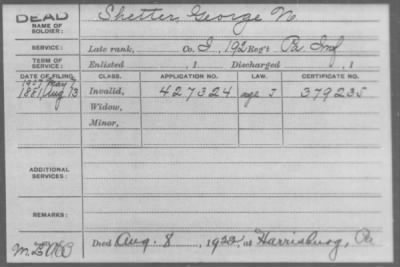 DEAD
NAME OF SOLDIER: Shetter, George N.
SERVICE: Late rank, Co. I, 192 Reg't Pa. Inf
TERM OF SERVICE: Enlisted , 1 Discharged , 1
DATE OF FILING. CLASS. APPLICATION NO. LAW. CERTIFICATE NO.
1907 May
1881 Aug 13 Invalid, 427324 age 379235
Widow,
Minor,
ADDITIONAL SERVICES:
REMARKS:
Died Aug. 8, 1922, at Harrisburg, Pa